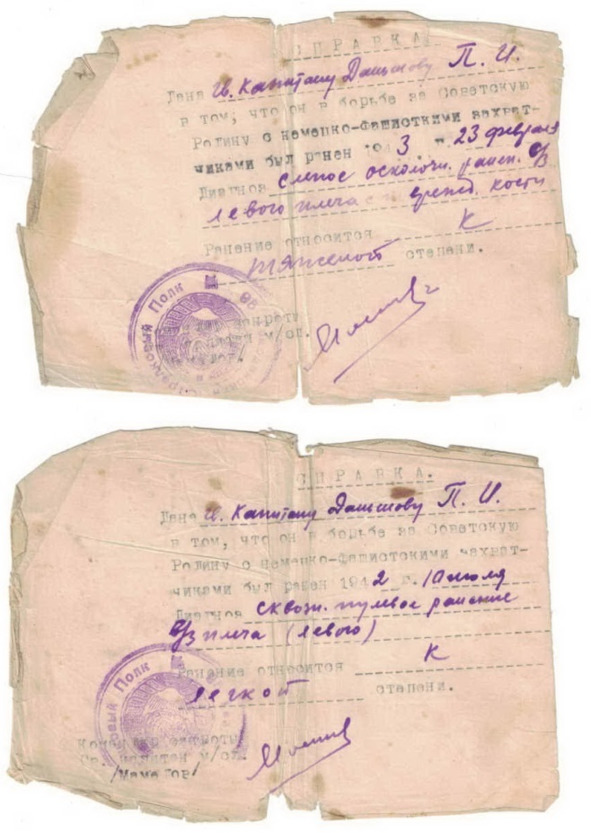 СПРАВКА
Дана Гв. Капитану Дашкову П. И.
в том, что он в борьбе за Советскую
Родину с немецко-фашисткими захват-
чиками был ранен 1943 г. 23 февраля
Диагноз слепое осколочн. ранен. в/з
левого плеча с кости
Ранение относится К
тяжелой степени.
СПРАВКА.
Дана Гв. Капитану Дашкову П. И.
в том, что он в борьбе за Советскую
Родину с немецко-фашистскими захват-
чиками был ранен 1942 г. 10 июля
Диагноз сквозн. пулевое ранение
в/з плеча (левого)
Ранение относится К
легкой степени.
Полк
/Маматов/